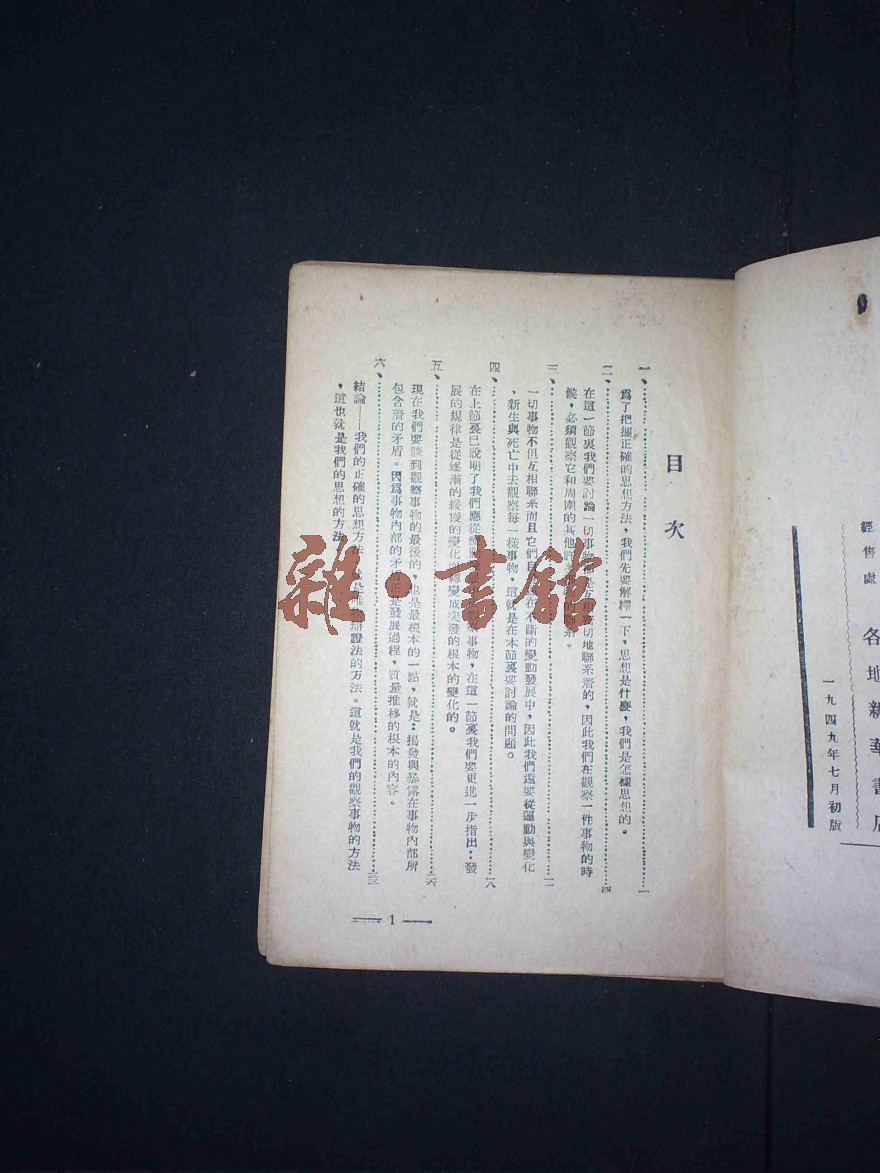 經售處 各地新華書店
一九四九年七月初版
目次
一、一
爲了把握正確的思想方法，我們先要解釋一下，思想是什麼，我們是怎樣思想的。
二、四
在這一節裏我們要討論一切事物 是 切地聯系着的，因此我們在觀察一件事物的時
候，必須觀察它和周圍的其他 系。
三、一一
一切事物不但互相聯系而且它們 在不斷的變動發展中，因此我們還要從運動與變化
，新生與死亡中去觀察每一樣事物，這就是在本節裏要討論的問題。
四、一八
在上節裏已說明了我們應從 事物，在這一節裏我們要更進一步指出：發
展的規律是從逐漸的緩慢的變化 轉變成突發的根本的變化的。
五、二六
現在我們要談到觀察事物的最後的，也是最根本的一點，就是：揭發與暴露在事物內部所
包含着的矛盾。因爲事物內部的矛盾正是發展過程，質量推移的根本的內容。
六、三三
結論——我們的正確的思想方法 就是唯物辯證法的方法。這就是我們的觀察事物的方法
，這也就是我們的思想的方法。
1
雜·書館